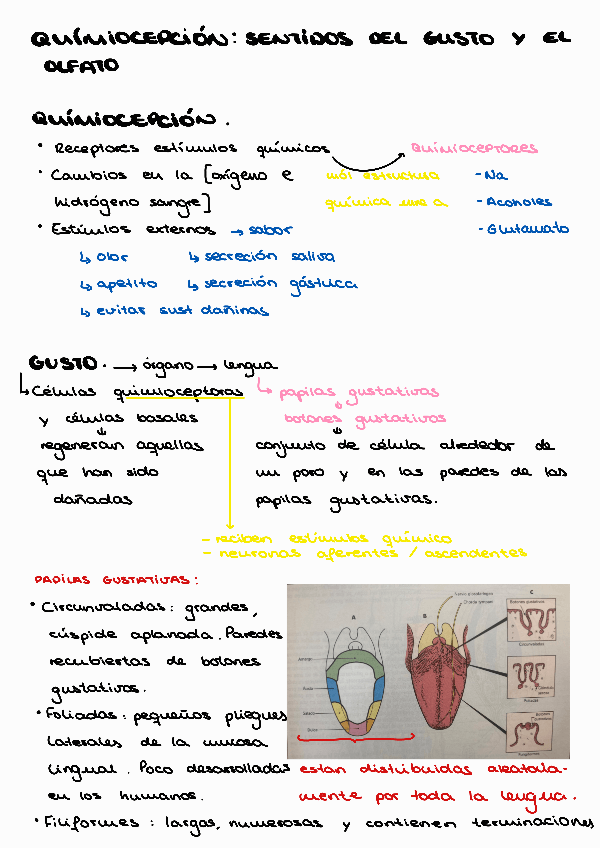 QUÍMIOCEPCIÓN: SENTIDOS DEL GUSTO Y EL
OLFATO
QUÍMIOCEPCIÓN.
• Receptores estímulos químicos QUÍMIOCEPTORES
• Cambios en la [oxígeno e
hidrógeno sangre]
mól estructura
química una a
- Na
- Acoholes
- Glutamato
• Estímulos externos → sabor
↳ olor ↳ secreción saliva
↳ apetito ↳ secreción gástrica
↳ evitar sust dañinas
GUSTO. → órgano → lengua
↳ Células quimioceptoras
y células basales
regeneran aquellas
que han sido
dañadas
↳ papilas gustativas
botones gustativos
conjunto de célula alrededor de
un poro y en las paredes de las
papilas gustativas.
- reciben estímulos químico
- neuronas aferentes / ascendentes
PAPILAS GUSTATIVAS:
• Circunvaladas: grandes,
cúspide aplanada. Paredes
recubiertas de botones
gustativos.
• Foliadas: pequeños pliegues
laterales de la mucosa
lingual. Poco desarrolladas
en los humanos.
A
B
C
Amargo
Ácido
Salado
Dulce
estan distribuidas aleatoria-
mente por toda la lengua.
• Filiformes: largas, numerosas y contienen terminaciones